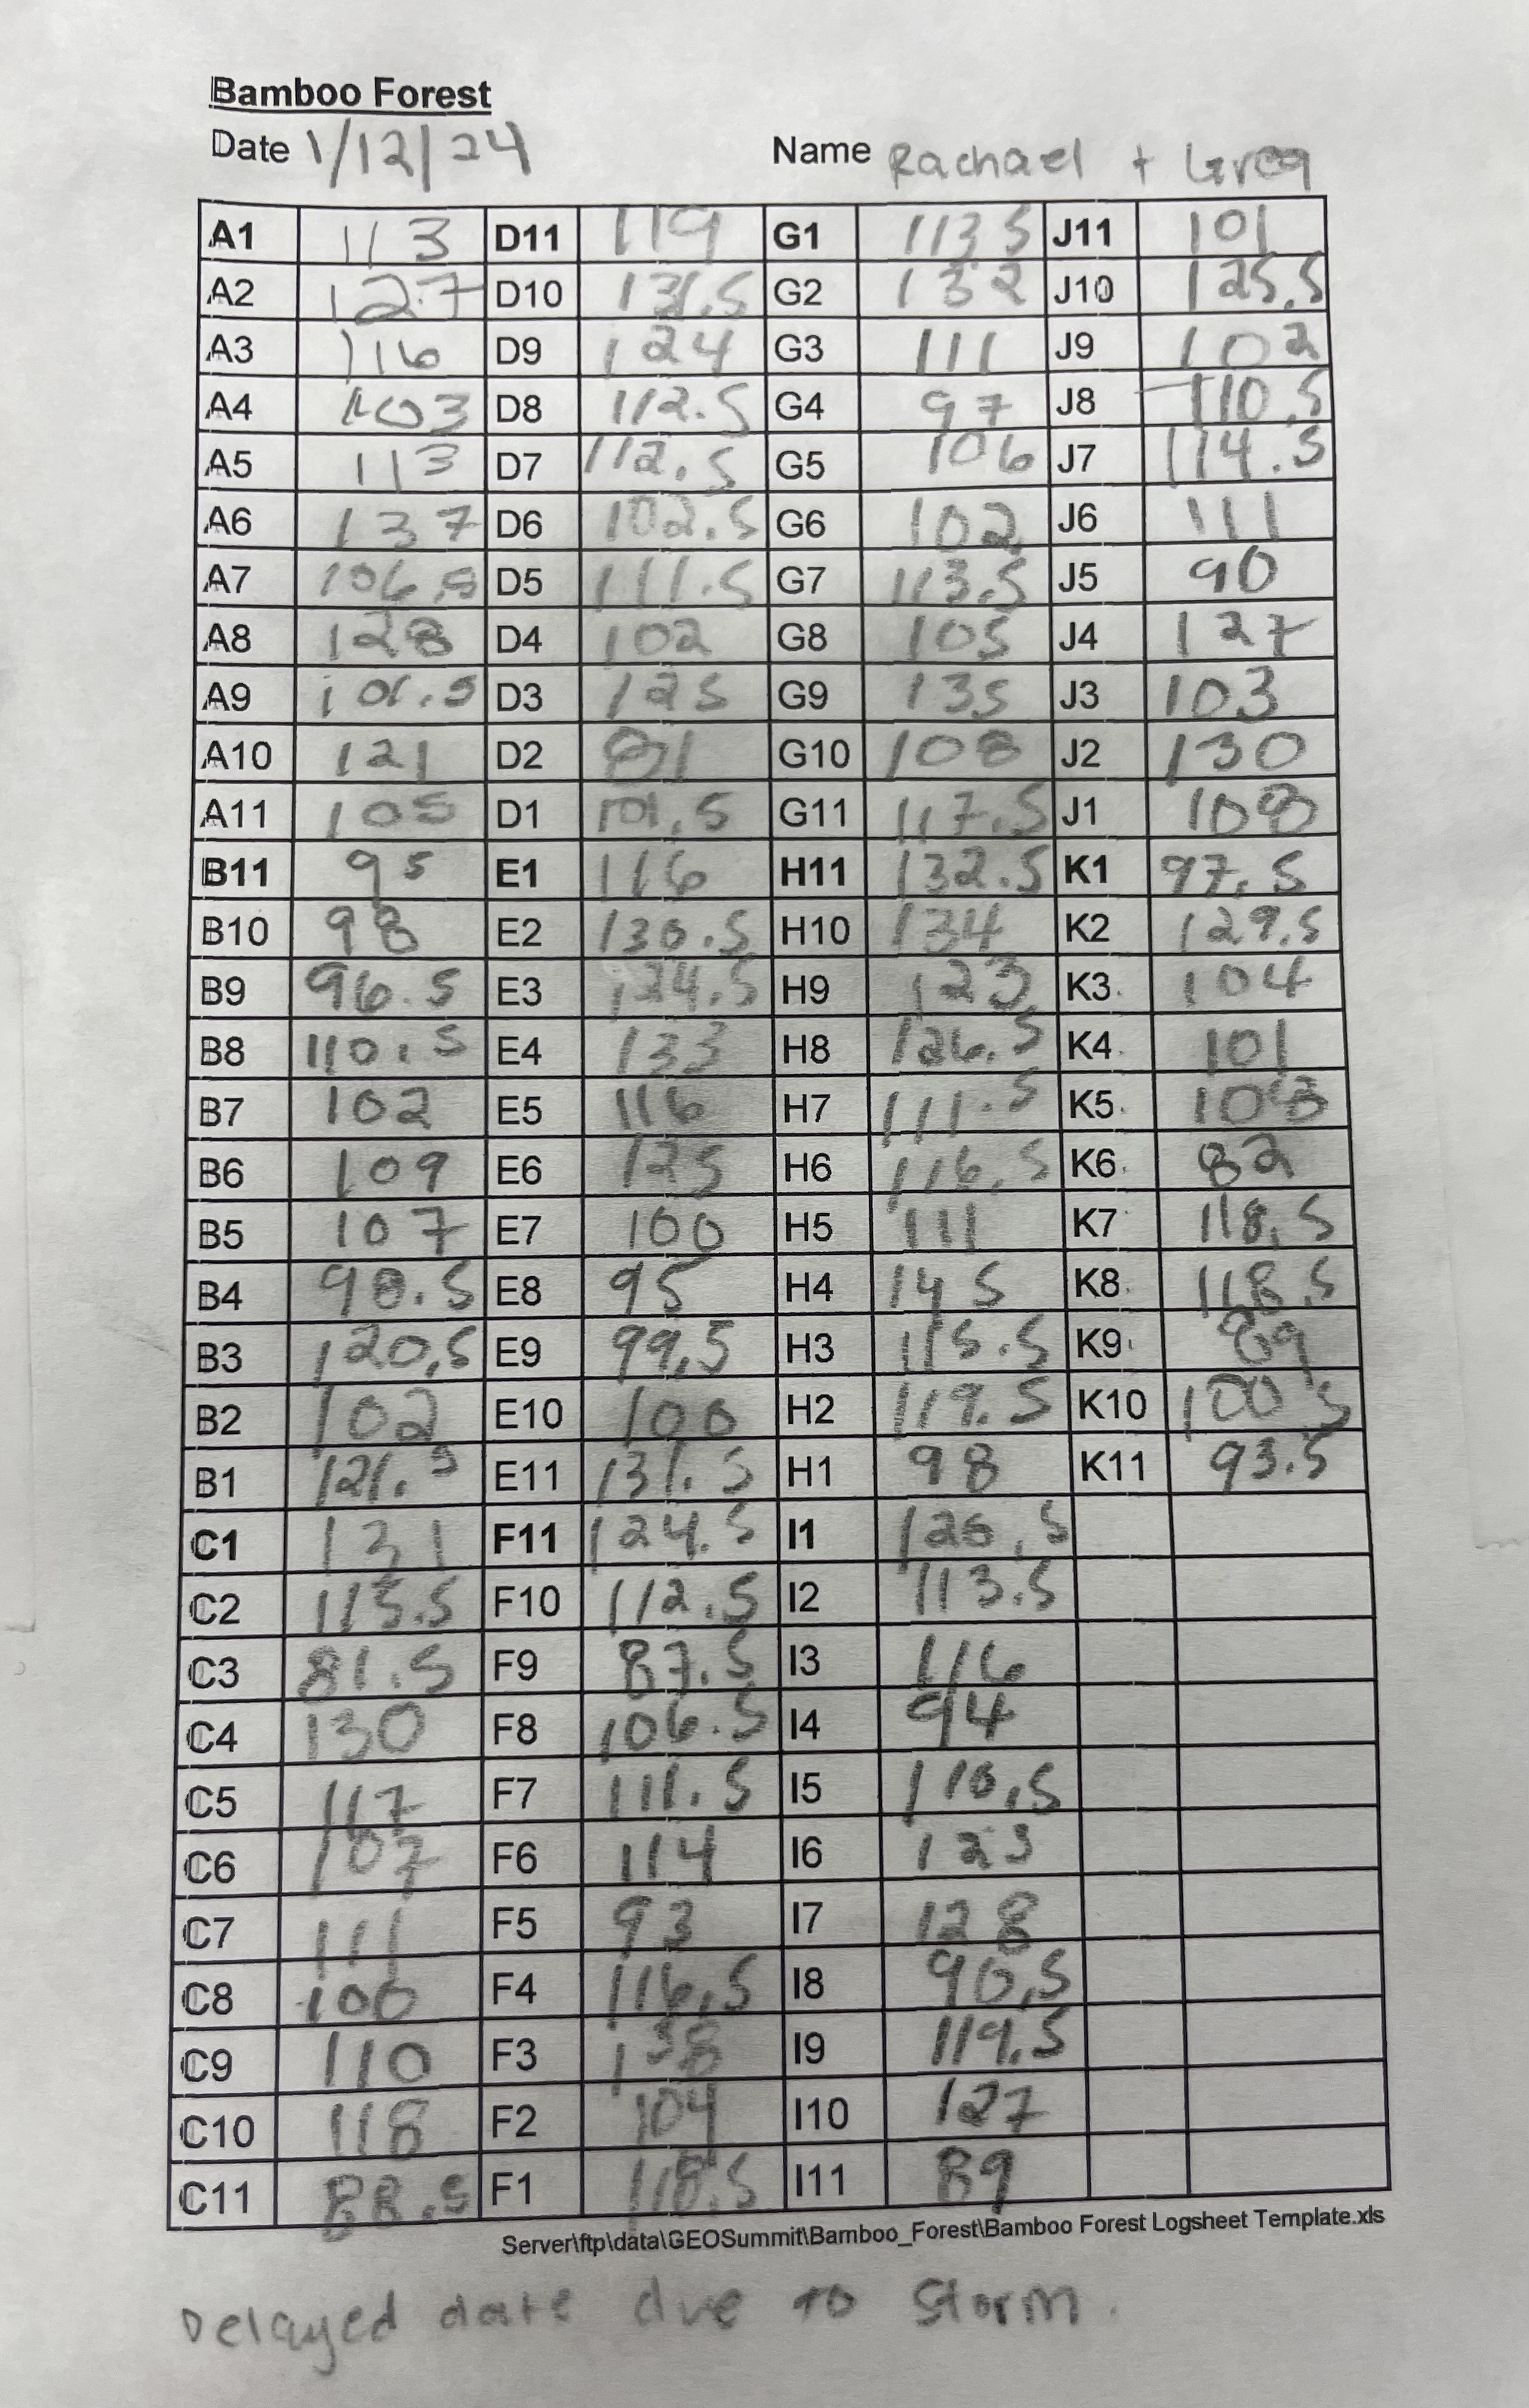 Bamboo Forest
Date 1/12/24 Name Rachael + Greg
A1 113 D11 119 G1 113.5 J11 101
A2 127 D10 131.5 G2 132 J10 125.5
A3 116 D9 124 G3 111 J9 102
A4 103 D8 112.5 G4 97 J8 110.5
A5 113 D7 112.5 G5 106 J7 114.5
A6 137 D6 102.5 G6 102 J6 111
A7 106.5 D5 111.5 G7 113.5 J5 90
A8 128 D4 102 G8 105 J4 127
A9 101.5 D3 125 G9 135 J3 103
A10 121 D2 G10 108 J2 130
A11 105 D1 101.5 G11 117.5 J1 108
B11 95 E1 116 H11 132.5 K1 97.5
B10 98 E2 130.5 H10 134 K2 129.5
B9 96.5 E3 124.5 H9 123 K3 104
B8 110.5 E4 133 H8 126.5 K4 101
B7 102 E5 116 H7 111.5 K5
B6 109 E6 125 H6 116.5 K6 82
B5 107 E7 100 H5 111 K7 118.5
B4 98.5 E8 95 H4 145 K8 118.5
B3 120.5 E9 99.5 H3 115.5 K9 89
B2 102 E10 100 H2 119.5 K10 100.5
B1 121.5 E11 131.5 H1 98 K11 93.5
C1 131 F11 124.5 I1 126.5
C2 115.5 F10 112.5 I2 113.5
C3 81.5 F9 87.5 I3 116
C4 130 F8 106.5 I4 94
C5 117 F7 111.5 I5 110.5
C6 107 F6 114 I6 123
C7 111 F5 93 I7 128
C8 100 F4 116.5 I8 90.5
C9 110 F3 138 I9 119.5
C10 118 F2 104 I10 127
C11 88.5 F1 118.5 I11 89
Server\ftp\data\GEOSummit\Bamboo_Forest\Bamboo Forest Logsheet Template.xls
Delayed date due to storm.